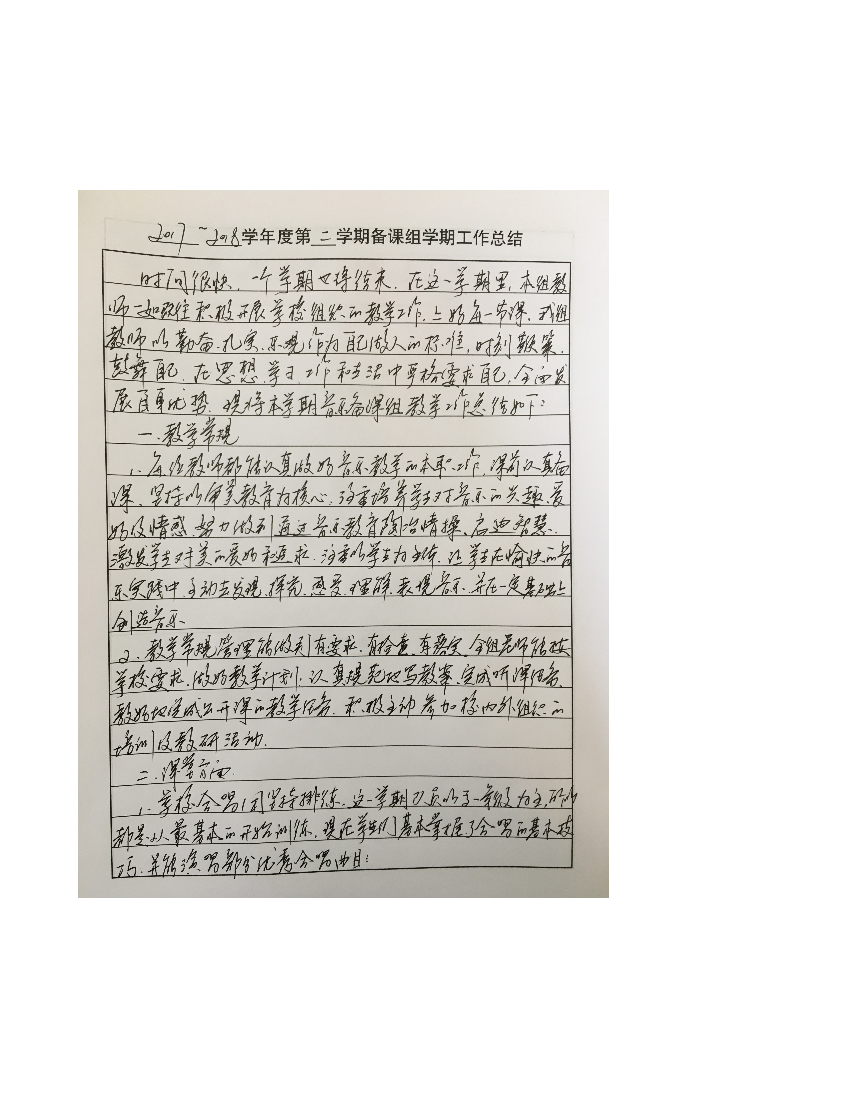 2017~2018学年度第二学期备课组学期工作总结
时间很快,一个学期也将结束,在这一学期里,本组教
师一如既往积极开展学校组织的教学工作,上好每一节课,我组
教师以勤奋、扎实、乐观作为自己做人的标准,时刻鞭策、
鼓舞自己,在思想、学习、工作和生活中严格要求自己,全面发
展自身优势,现将本学期音乐备课组教学工作总结如下:
一.教学常规
1.每位教师都能认真做好音乐教学的本职工作,课前认真备
课、坚持以审美教育为核心,注重培养学生对音乐的兴趣、爱
好及情感,努力做到通过音乐教育陶冶情操、启迪智慧、
激发学生对美的爱好和追求,注重以学生为主体,让学生在愉快的音
乐实践中,主动去发现、探究、感受、理解、表现音乐,并在一定基础上
创造音乐.
2.教学常规管理能做到有要求、有检查、有落实,全组老师能按
学校要求,做好教学计划,认真规范地写教案,完成听课任务,
较好地完成公开课的教学任务,积极主动参加校内外组织的
培训及教研活动.
二.课堂方面
1.学校合唱团坚持排练,这一学期团员以于一年级为主,所以
都是从最基本的开始训练,现在学生们基本掌握了合唱的基本技
巧,并能演唱部分优秀合唱曲目: